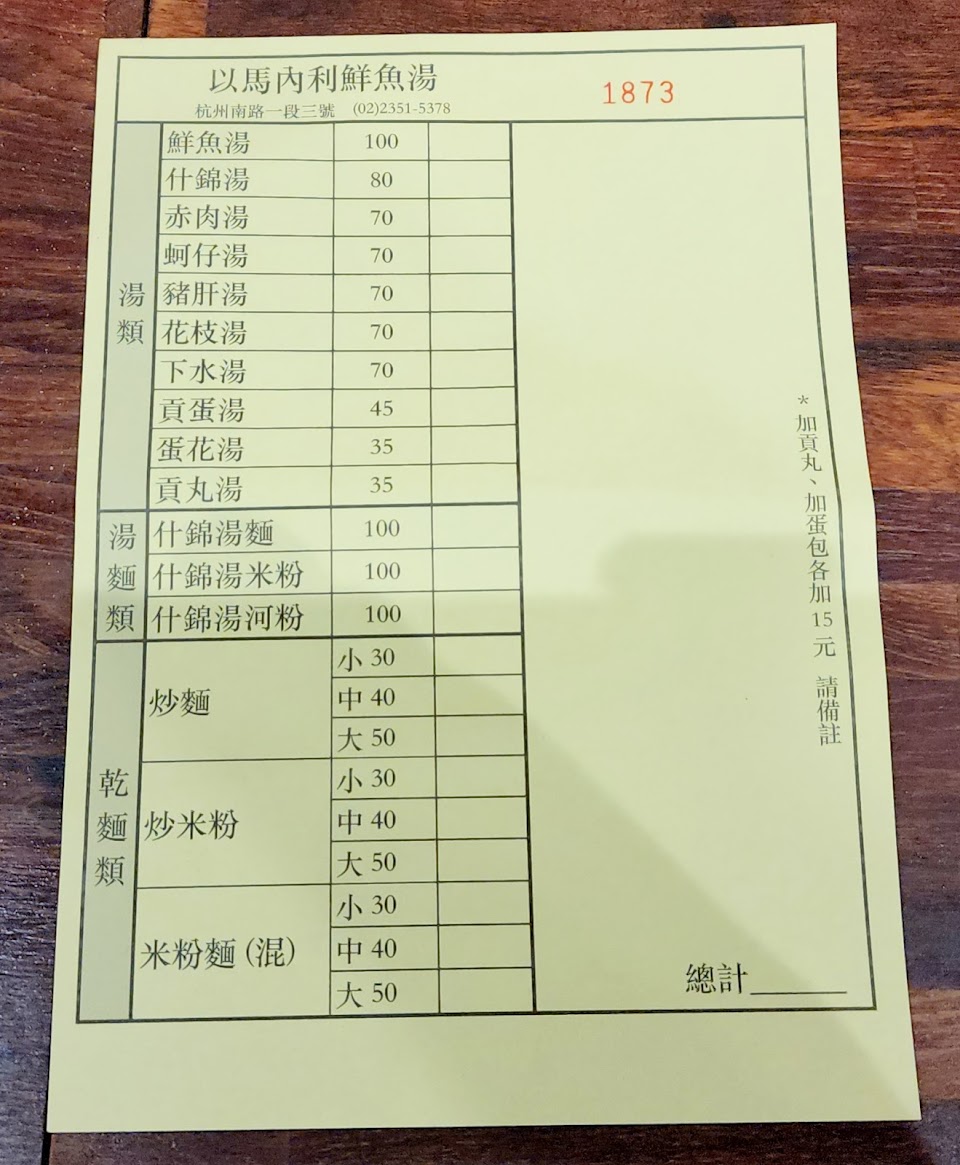 以馬內利鮮魚湯
1873
杭州南路一段三號 (02)2351-5378
湯類
鮮魚湯 100
什錦湯 80
赤肉湯 70
蚵仔湯 70
豬肝湯 70
花枝湯 70
下水湯 70
貢蛋湯 45
蛋花湯 35
貢丸湯 35
湯麵類
什錦湯麵 100
什錦湯米粉 100
什錦湯河粉 100
乾麵類
炒麵
小 30
中 40
大 50
炒米粉
小 30
中 40
大 50
米粉麵(混)
小 30
中 40
大 50
*加貢丸、加蛋包各加15元 請備註
總計